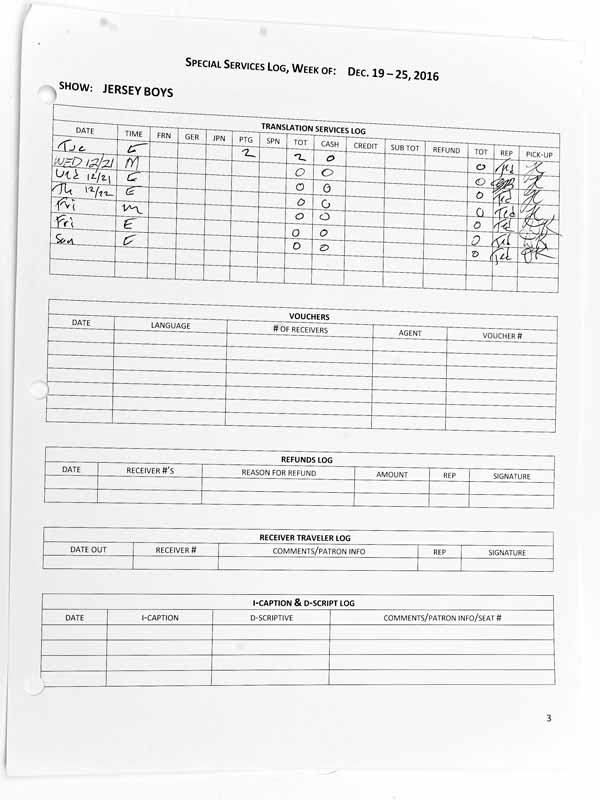 SPECIAL SERVICES LOG, WEEK OF: DEC. 19 – 25, 2016
SHOW: JERSEY BOYS
TRANSLATION SERVICES LOG
DATE TIME FRN GER JPN PTG SPN TOT CASH CREDIT SUB TOT REFUND TOT REP PICK-UP
Tue E 2 2 0
WED 12/21 M 0 0 0 Ted
Wed 12/21 E 0 0 0
Th 12/22 E 0 0 0 Ted
Fri M 0 0 0 Ted
Fri E 0 0 0 Ted
Sun E 0 0 0 Ted
0 Ted
VOUCHERS
DATE LANGUAGE # OF RECEIVERS AGENT VOUCHER #
REFUNDS LOG
DATE RECEIVER #'S REASON FOR REFUND AMOUNT REP SIGNATURE
RECEIVER TRAVELER LOG
DATE OUT RECEIVER # COMMENTS/PATRON INFO REP SIGNATURE
I-CAPTION & D-SCRIPT LOG
DATE I-CAPTION D-SCRIPTIVE COMMENTS/PATRON INFO/SEAT #
3